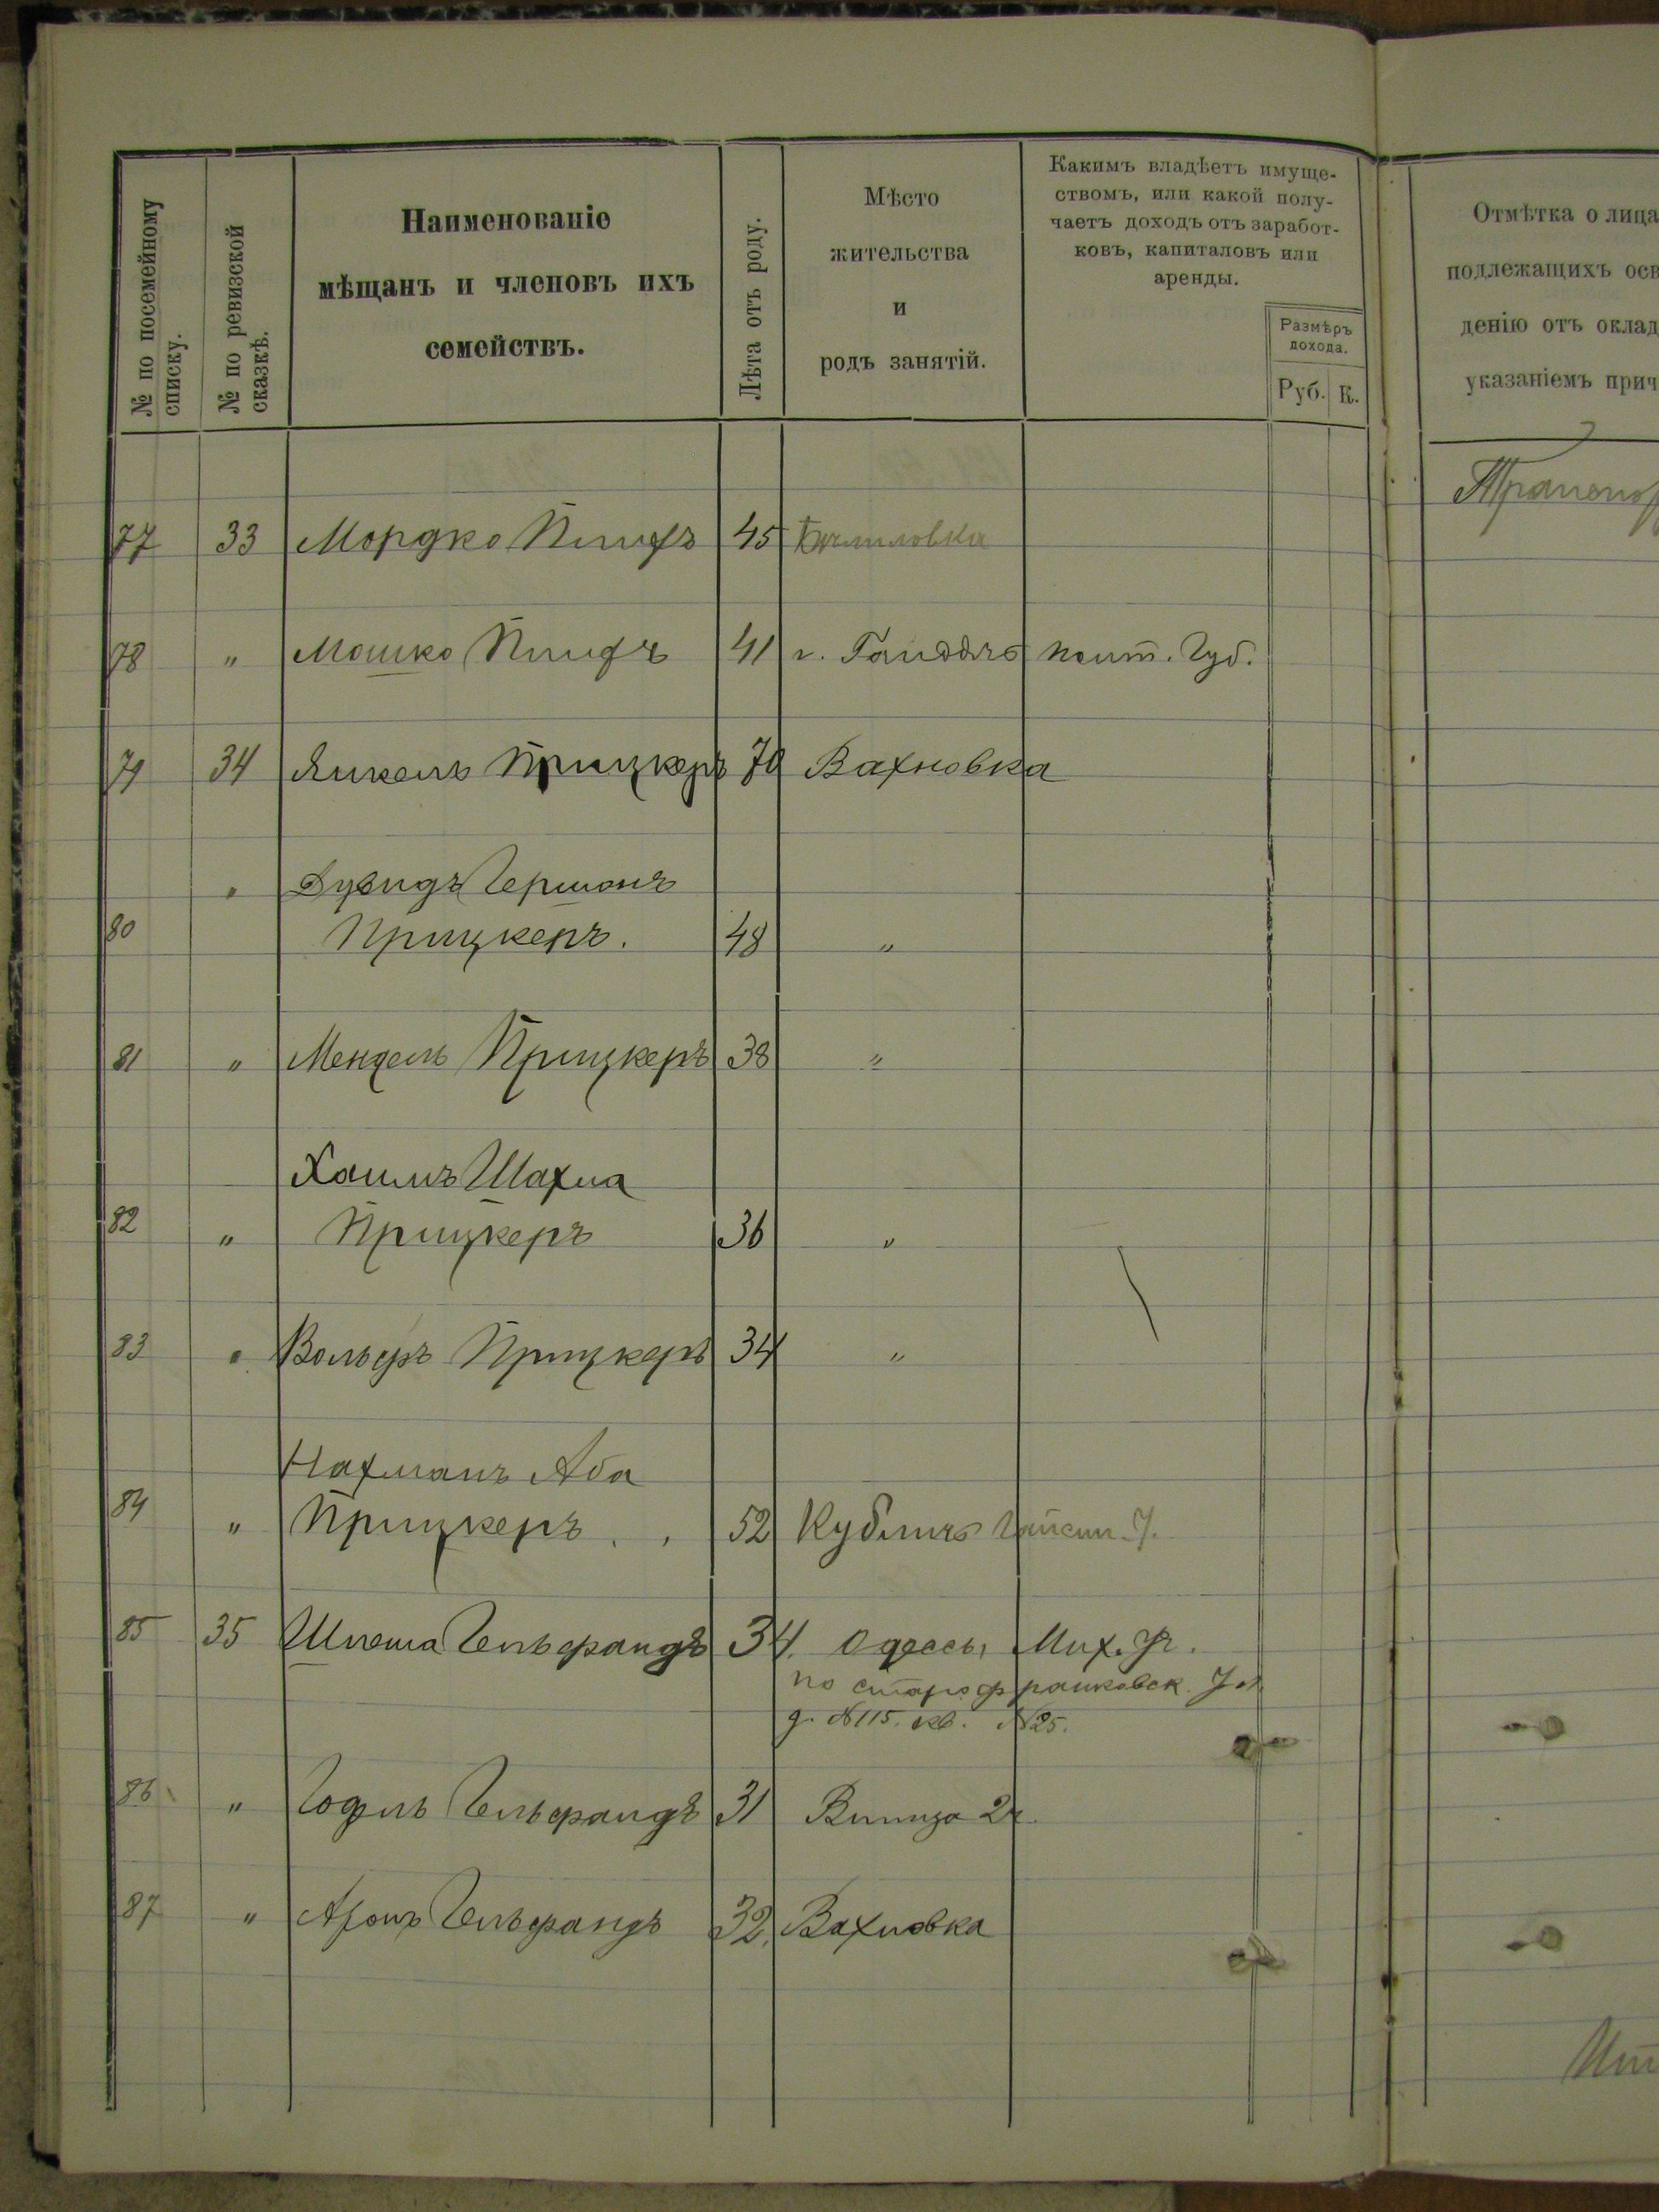 № по посемейному списку.
№ по ревизской сказкѣ.
Наименованіе
мѣщанъ и членовъ ихъ
семействъ.
Лѣта отъ роду.
Мѣсто
жительства
и
родъ занятій.
Какимъ владѣетъ имуще-
ствомъ, или какой полу-
чаетъ доходъ отъ заработ-
ковъ, капиталовъ или
аренды.
Размѣръ
дохода.
Руб. К.
Отмѣтка о лица
подлежащихъ осв
денію отъ оклад
указаніемъ прич
77 33 Мордко 45
78 " Мошко 41 г. Губ.
79 34 Янкель Прицкеръ 70 Вахновка
" Дувидъ Гершонъ
80 Прицкеръ. 48 "
81 " Мендель Прицкеръ 38 "
Хаимъ Шахна
82 " Прицкеръ 36 "
83 " Вольфъ Прицкеръ 34 "
Нахманъ Аба
84 " Прицкеръ 52 Кубличъ Гайсин. У.
85 35 Шлема Гельфандъ 34. Одессы, Мих. уч.
по старофранковск. Ул.
д. №115. кв. №25.
86 " Годель Гельфандъ 31 Винница
87 " Аронъ Гельфандъ 32. Вахновка